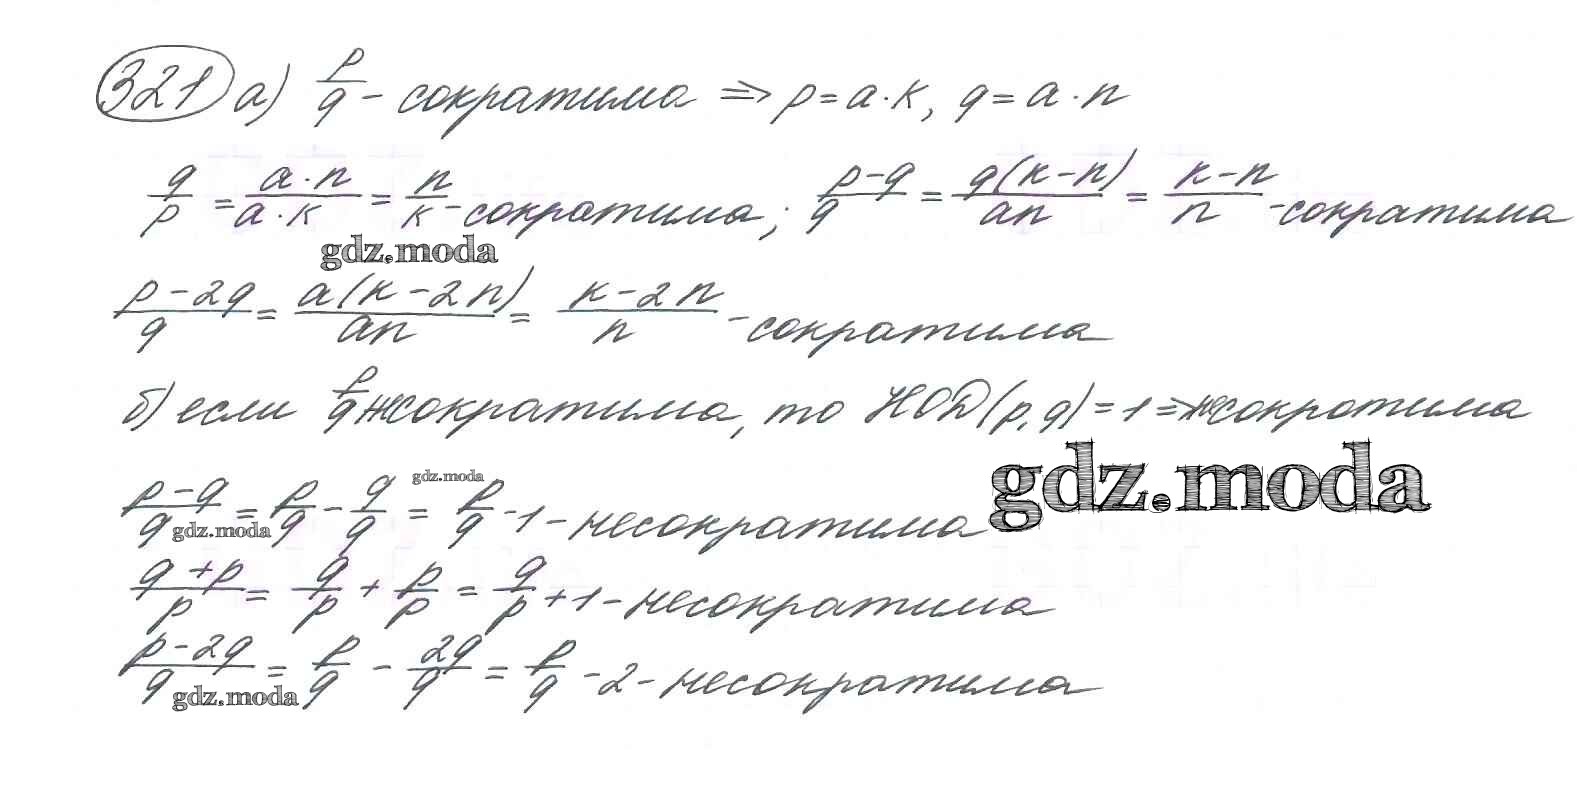 321 а) p/q - сократима => p = a·k, q = a·n
q/p = a·n/a·k = n/k - сократима; p-q/q = q(k-n)/an = k-n/n - сократима
gdz.moda
p-2q/q = a(k-2n)/an = k-2n/n - сократима
б) если p/q несократима, то НОД(p,q)=1 => несократима
gdz.moda
gdz.moda
p-q/q = p/q - q/q = p/q - 1 - несократима
gdz.moda
q+p/p = q/p + p/p = q/p + 1 - несократима
p-2q/q = p/q - 2q/q = p/q - 2 - несократима
gdz.moda